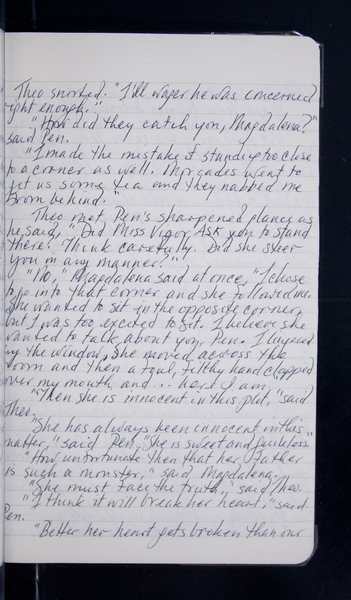 Theo snorted. "I'll wager he was concerned
right enough."
"How did they catch you, Magdalena?"
said Pen.
"I made the mistake of standing too close
to a corner as well. Mprgades went to
get us some tea and they nabbed me
from behind."
Theo met Pen's sharpened glance as
he said, "Did Miss Vigor Ask you to stand
there? Think carefully. Did she steer
you in any manner?"
"No," Magdalena said at once, "I chose
to go into that corner and she followed me.
She wanted to sit in the opposite corner,
but I was too excited to sit. I believe she
wanted to talk about you, Pen. I lingered
by the window, she moved across the
room and then a foul, filthy hand clapped
over my mouth and... here I am.
"Then she is innocent in this plot," said
Theo.
"She has always been innocent in this
matter," said Pen, "She is sweet and guileless."
"How unfortunate then that her father
is such a monster," said Magdalena.
"She must face the truth," said Theo.
"I think it will break her heart," said
Pen.
"Better her heart gets broken than our